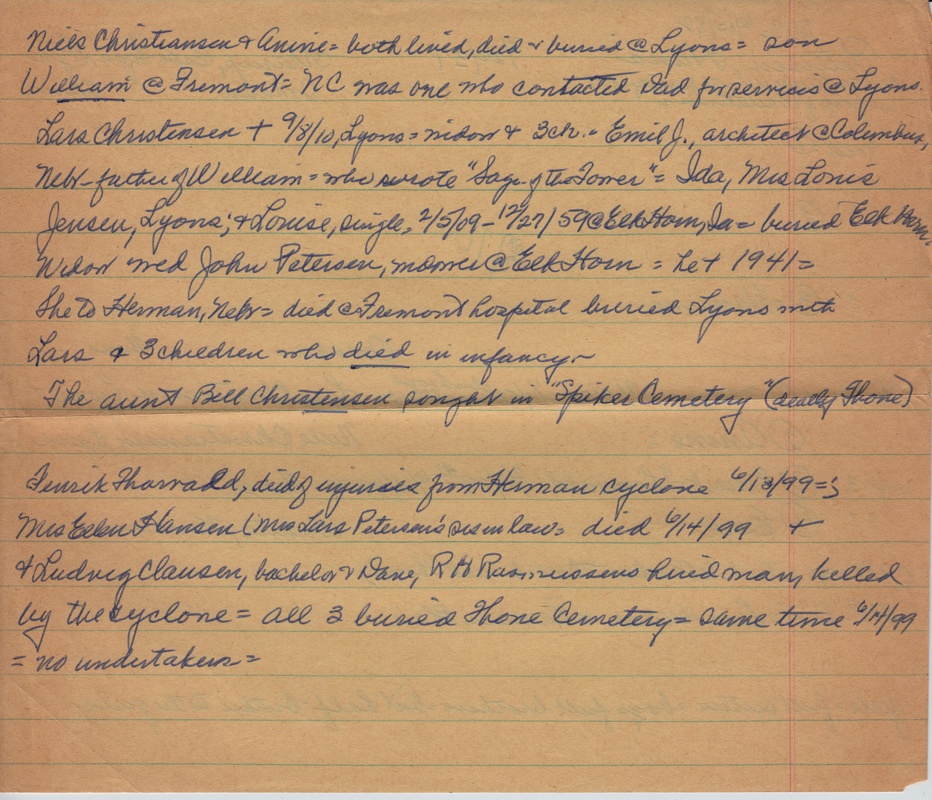 Niels Christiansen & Anine = both lived, died & buried @ Lyons = son
William @ Fremont = NC was one who contacted Dad for services @ Lyons.
Lars Christensen + 9/8/10, Lyons = widow & 3 ch. = Emil J., architect @ Columbus,
Nebr - father of William = who wrote "Saga of the Tower" = Ida, Mrs Louis
Jensen, Lyons; & Louise, single, 2/5/09 - 12/27/59 @ Elk Horn, Ia = buried Elk Horn.
Widow wed John Petersen, widower @ Elk Horn = he + 1941 =
She to Herman, Nebr = died @ Fremont hospital buried Lyons with
Lars & 3 children who died in infancy -
The aunt Bill Christensen sought in "Spiker Cemetery" (really Thone)
Fenrik Thorvald, died of injuries from Herman cyclone 6/13/99 = ;
Mrs Ellen Hansen (Mrs Lars Petersen's sis in law = died 6/14/99 +
& Ludvig Clausen, bachelor & Dane, R H Rasmussens hired man, killed
by the cyclone = all 3 buried Thone Cemetery = same time 6/14/99
= no undertakers =